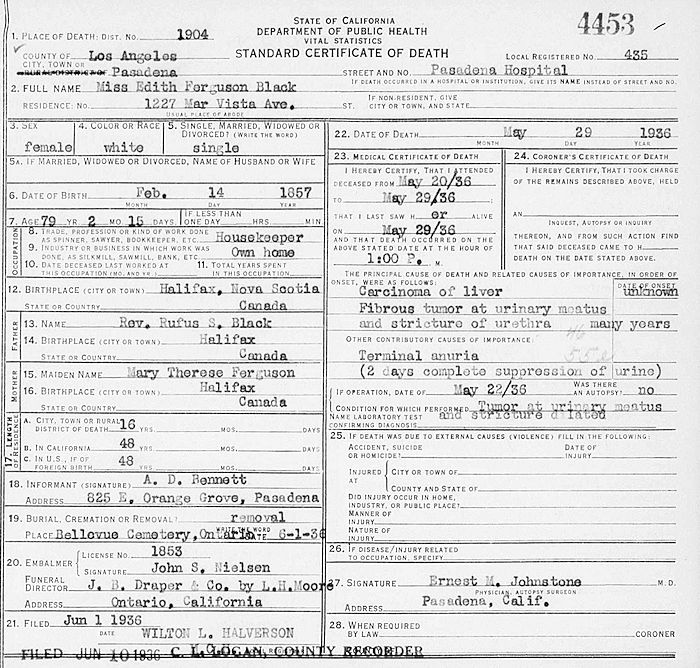 STATE OF CALIFORNIA
DEPARTMENT OF PUBLIC HEALTH
VITAL STATISTICS
STANDARD CERTIFICATE OF DEATH
4453
1. PLACE OF DEATH: DIST. NO. 1904
COUNTY OF Los Angeles
LOCAL REGISTERED NO. 435
CITY, TOWN OR
RURAL DISTRICT OF Pasadena
STREET AND NO. Pasadena Hospital
IF DEATH OCCURRED IN A HOSPITAL OR INSTITUTION, GIVE ITS NAME INSTEAD OF STREET AND NO.
2. FULL NAME Miss Edith Ferguson Black
RESIDENCE: NO. 1227 Mar Vista Ave. ST.
USUAL PLACE OF ABODE
IF NON-RESIDENT, GIVE
CITY OR TOWN, AND STATE
3. SEX female
4. COLOR OR RACE white
5. SINGLE, MARRIED, WIDOWED OR
DIVORCED? (WRITE THE WORD)
single
5A. IF MARRIED, WIDOWED OR DIVORCED, NAME OF HUSBAND OR WIFE
6. DATE OF BIRTH Feb. 14 1857
MONTH DAY YEAR
7. AGE 79 YR. 2 MO. 15 DAYS
IF LESS THAN
ONE DAY HRS. MIN
OCCUPATION
8. TRADE, PROFESSION OR KIND OF WORK DONE
AS SPINNER, SAWYER, BOOKKEEPER, ETC. Housekeeper
9. INDUSTRY OR BUSINESS IN WHICH WORK WAS
DONE, AS SILKMILL, SAWMILL, BANK, ETC Own home
10. DATE DECEASED LAST WORKED AT
THIS OCCUPATION (MO. AND YR.)
11. TOTAL YEARS SPENT
IN THIS OCCUPATION
12. BIRTHPLACE (CITY OR TOWN) Halifax, Nova Scotia
STATE OR COUNTRY Canada
FATHER
13. NAME Rev. Rufus S. Black
14. BIRTHPLACE (CITY OR TOWN) Halifax
STATE OR COUNTRY Canada
MOTHER
15. MAIDEN NAME Mary Therese Ferguson
16. BIRTHPLACE (CITY OR TOWN) Halifax
STATE OR COUNTRY Canada
17. LENGTH OF RESIDENCE
A. CITY, TOWN OR RURAL
DISTRICT OF DEATH 16 YRS. MOS. DAYS
B. IN CALIFORNIA 48 YRS. MOS. DAYS
C. IN U.S., IF OF
FOREIGN BIRTH 48 YRS. MOS. DAYS
18. INFORMANT (SIGNATURE) A. D. Bennett
ADDRESS 825 E. Orange Grove, Pasadena
19. BURIAL, CREMATION OR REMOVAL? removal
WRITE THE WORD
PLACE Bellevue Cemetery, Ontario DATE 6-1-36
20. EMBALMER LICENSE NO. 1853
SIGNATURE John S. Nielsen
FUNERAL
DIRECTOR J. B. Draper & Co. by L.H.Moore
ADDRESS Ontario, California
21. FILED Jun 1 1936
DATE WILTON L. HALVERSON
FILED JUN 10 1936 C. L. LOGAN, COUNTY RECORDER
22. DATE OF DEATH May 29 1936
MONTH DAY YEAR
23. MEDICAL CERTIFICATE OF DEATH
I HEREBY CERTIFY, THAT I ATTENDED
DECEASED FROM May 20/36
TO May 29/36
THAT I LAST SAW H er ALIVE
ON May 29/36
AND THAT DEATH OCCURRED ON THE
ABOVE STATED DATE AT THE HOUR OF
1:00 P. M.
24. CORONER'S CERTIFICATE OF DEATH
I HEREBY CERTIFY, THAT I TOOK CHARGE
OF THE REMAINS DESCRIBED ABOVE, HELD
AN
INQUEST, AUTOPSY OR INQUIRY
THEREON, AND FROM SUCH ACTION FIND
THAT SAID DECEASED CAME TO H
DEATH ON THE DATE STATED ABOVE.
THE PRINCIPAL CAUSE OF DEATH AND RELATED CAUSES OF IMPORTANCE, IN ORDER OF
ONSET, WERE AS FOLLOWS:
DATE OF ONSET
Carcinoma of liver unknown
Fibrous tumor at urinary meatus
and stricture of urethra many years
OTHER CONTRIBUTORY CAUSES OF IMPORTANCE:
46
Terminal anuria
(2 days complete suppression of urine)
IF OPERATION, DATE OF May 22/36
WAS THERE
AN AUTOPSY? no
CONDITION FOR WHICH PERFORMED Tumor at urinary meatus
NAME LABORATORY TEST and stricture dilated
CONFIRMING DIAGNOSIS
25. IF DEATH WAS DUE TO EXTERNAL CAUSES (VIOLENCE) FILL IN THE FOLLOWING:
ACCIDENT, SUICIDE
OR HOMICIDE?
DATE OF
INJURY
INJURED
AT
CITY OR TOWN OF
COUNTY AND STATE OF
DID INJURY OCCUR IN HOME,
INDUSTRY, OR PUBLIC PLACE?
MANNER OF
INJURY
NATURE OF
INJURY
26. IF DISEASE/INJURY RELATED
TO OCCUPATION, SPECIFY
27. SIGNATURE Ernest M. Johnstone M.D.
PHYSICIAN, AUTOPSY SURGEON
ADDRESS Pasadena, Calif.
28. WHEN REQUIRED
BY LAW CORONER